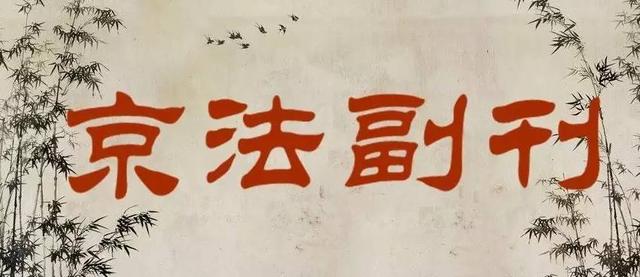 京法副刊